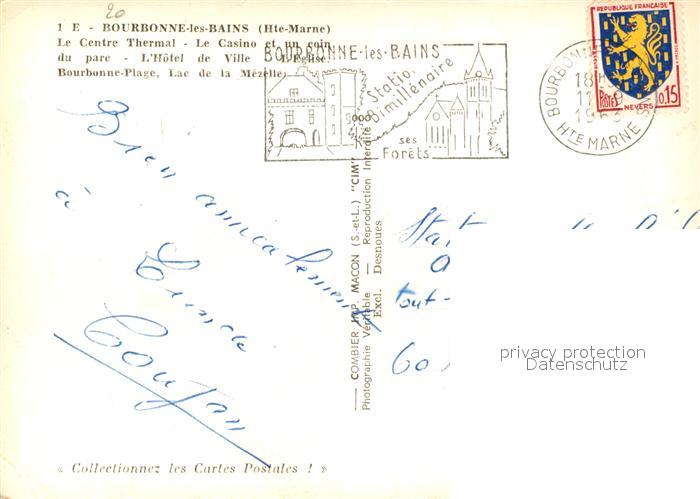 20
1 E - BOURBONNE-les-BAINS (Hte-Marne)
Le Centre Thermal - Le Casino et un coin
du parc - L'Hôtel de Ville - L'Eglise
Bourbonne-Plage, Lac de la Mézelle
BOURBONNE-les-BAINS
Station
Bimillénaire
ses
Forêts
BOURBONNE
18H
11
196
HTE MARNE
REPUBLIQUE FRANCAISE
POSTES
0,15
NEVERS
Bien amicalement
à
COMBIER IMP. MACON (S.-et-L.) "CIM"
Photographie Véritable — Reproduction Interdite
Excl. Desnoues
tout-
60
privacy protection
Datenschutz
« Collectionnez les Cartes Postales ! »